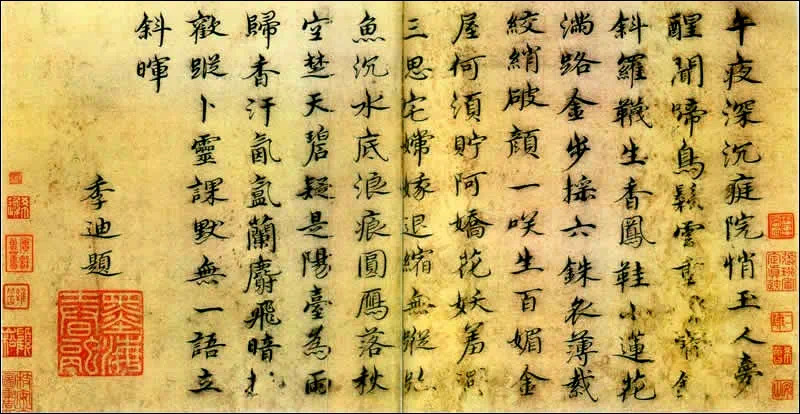 午夜深沉庭院悄玉人夢
醒聞啼鳥鬆雲
斜羅韈生香鳳鞋小蓮花
滿路金步採六銖衣薄裁
絞綃破顏一咲生百媚金
屋何須貯阿嬌花妖羞
三思宅嫦娥退縮無蹤
魚沉水底浪痕圓鴈落秋
空楚天碧疑是陽臺為雨
歸香汗氤氳蘭麝飛暗
歡蹤卜靈課默無一語立
斜暉
季迪題